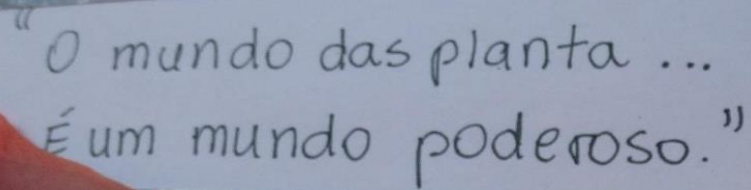 "O mundo das planta ...
É um mundo poderoso."